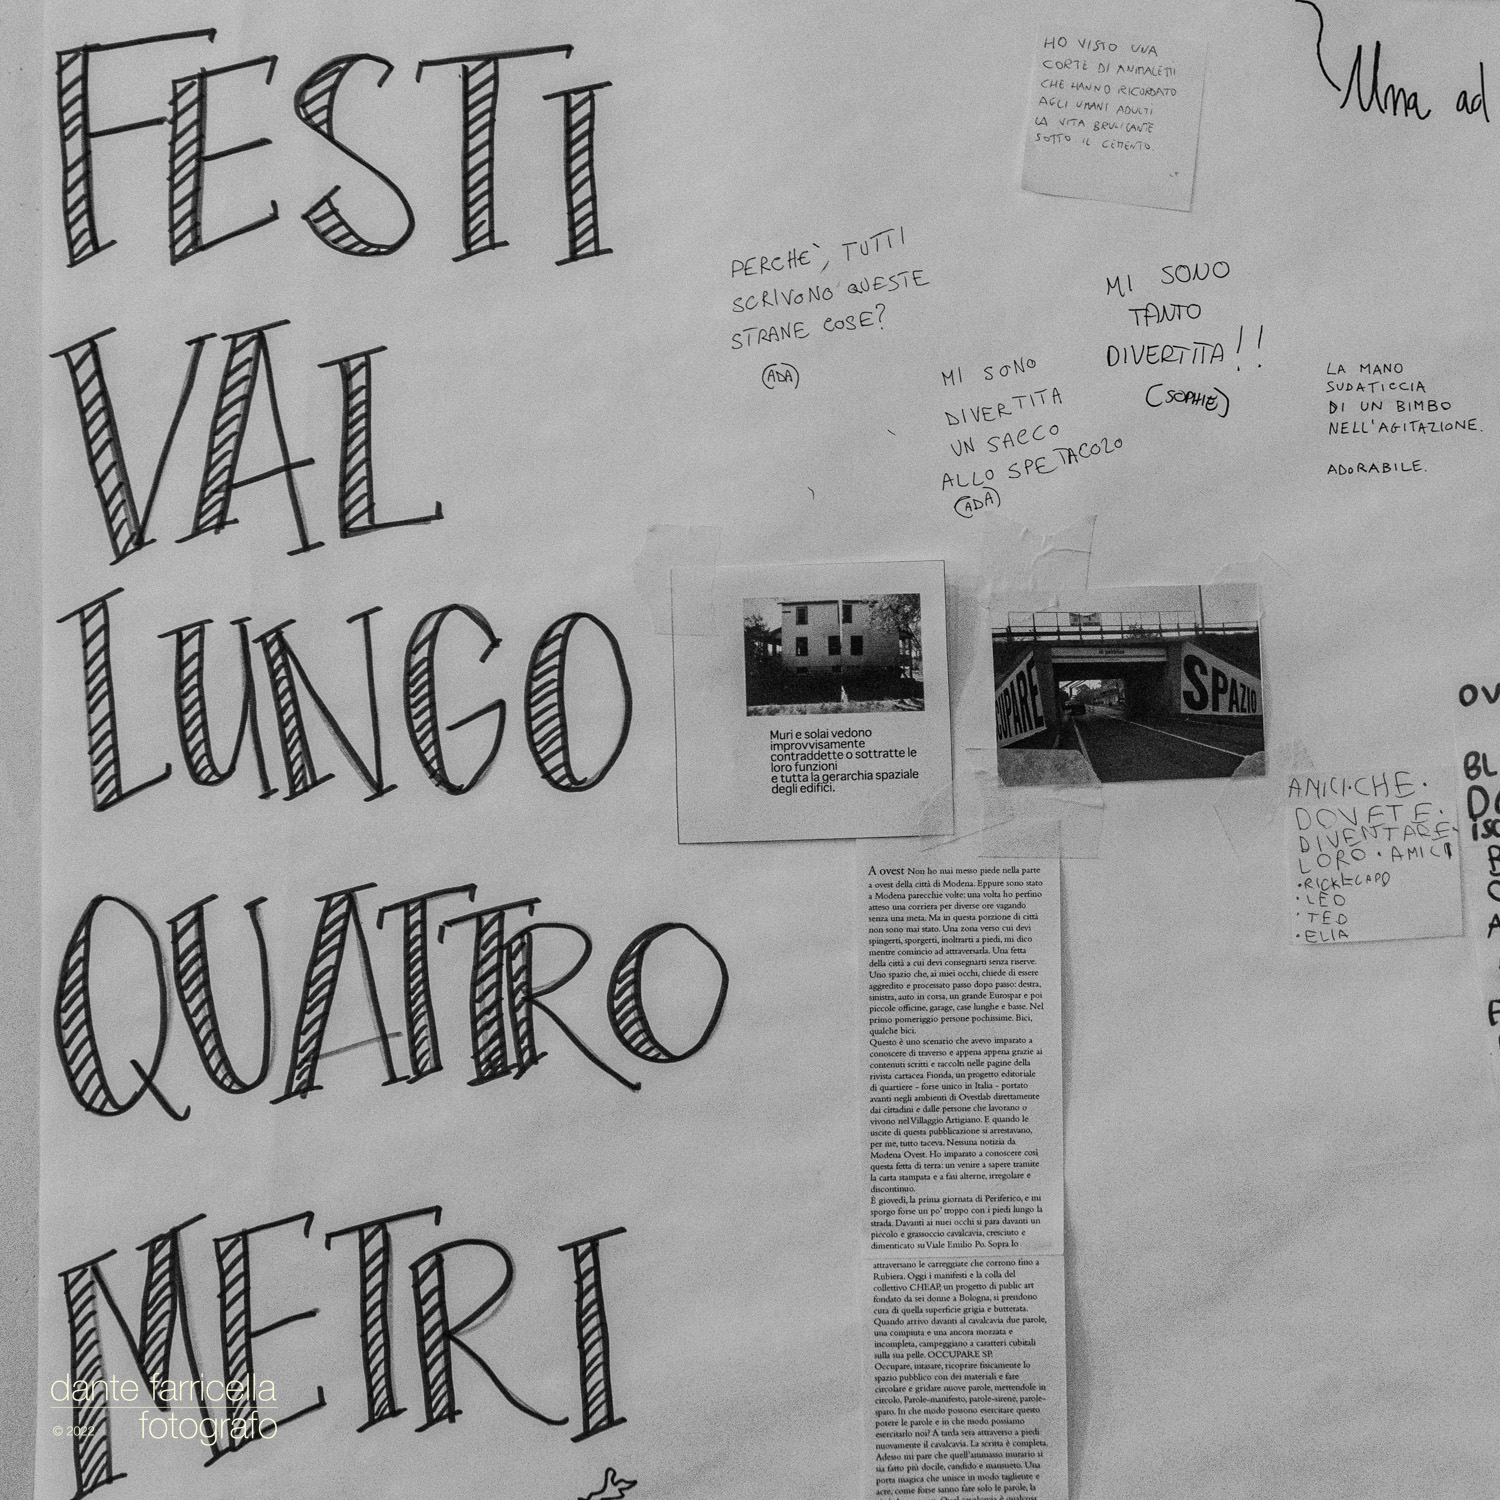 FESTI
VAL
LUNGO
QUATTRO
METRI
HO VISTO UNA
CORTE DI ANIMALETTI
CHE HANNO RICORDATO
AGLI UMANI ADULTI
LA VITA BRULICANTE
SOTTO IL CEMENTO.
Una ad
PERCHE`, TUTTI
SCRIVONO QUESTE
STRANE COSE?
(ADA)
MI SONO
TANTO
DIVERTITA!!
(SOPHIE)
MI SONO
DIVERTITA
UN SACCO
ALLO SPETACOLO
(ADA)
LA MANO
SUDATICCIA
DI UN BIMBO
NELL'AGITAZIONE.
ADORABILE.
Muri e solai vedono
improvvisamente
contraddette o sottratte le
loro funzioni
e tutta la gerarchia spaziale
degli edifici.
CUPARE
SPAZIO
AMICI·CHE·
DOVETE·
DIVENTARE·
LORO·AMICI
·RICKECAPO
·LEO
·TED
·ELIA
OV
BL
A ovest Non ho mai messo piede nella parte
a ovest della città di Modena. Eppure sono stato
a Modena parecchie volte: una volta ho perfino
atteso una corriera per diverse ore vagando
senza una meta. Ma in questa porzione di città
non sono mai stato. Una zona verso cui devi
spingerti, sporgerti, inoltrarti a piedi, mi dico
mentre comincio ad attraversarla. Una fetta
della città a cui devi consegnarti senza riserve.
Uno spazio che, ai miei occhi, chiede di essere
aggredito e processato passo dopo passo: destra,
sinistra, auto in corsa, un grande Eurospar e poi
piccole officine, garage, case lunghe e basse. Nel
primo pomeriggio persone pochissime. Bici,
qualche bici.
Questo è uno scenario che avevo imparato a
conoscere di traverso e appena appena grazie ai
contenuti scritti e raccolti nelle pagine della
rivista cartacea Fionda, un progetto editoriale
di quartiere – forse unico in Italia – portato
avanti negli ambienti di Ovestlab direttamente
dai cittadini e dalle persone che lavorano o
vivono nel Villaggio Artigiano. E quando le
uscite di questa pubblicazione si arrestavano,
per me, tutto taceva. Nessuna notizia da
Modena Ovest. Ho imparato a conoscere così
questa fetta di terra: un venire a sapere tramite
la carta stampata e a fasi alterne, irregolare e
discontinuo.
È giovedì, la prima giornata di Periferico, e mi
sporgo forse un po' troppo con i piedi lungo la
strada. Davanti ai miei occhi si para davanti un
piccolo e grassoccio cavalcavia, cresciuto e
dimenticato su Viale Emilio Po. Sopra lo
attraversano le carreggiate che corrono fino a
Rubiera. Oggi i manifesti e la colla del
collettivo CHEAP, un progetto di public art
fondato da sei donne a Bologna, si prendono
cura di quella superficie grigia e butterata.
Quando arrivo davanti al cavalcavia due parole,
una compiuta e una ancora mozzata e
incompleta, campeggiano a caratteri cubitali
sulla sua pelle. OCCUPARE SP.
Occupare, intasare, ricoprire fisicamente lo
spazio pubblico con dei materiali e fare
circolare e gridare nuove parole, mettendole in
circolo. Parole-manifesto, parole-sirene, parole-
sparo. In che modo possono esercitare questo
potere le parole e in che modo possiamo
esercitarlo noi? A tarda sera attraverso a piedi
nuovamente il cavalcavia. La scritta è completa.
Adesso mi pare che quell'ammasso murario si
sia fatto più docile, candido e mansueto. Una
porta magica che unisce in modo tagliente e
acre, come forse sanno fare solo le parole, la
dante farricella
fotografo
© 2022